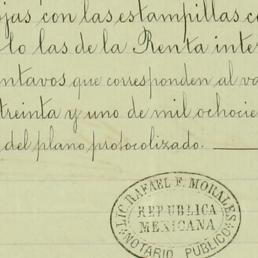 ojas con las estampillas co
lo las de la Renta inter
entavos que corresponden al va
treinta y uno de mil ochocie
del plano protocolizado.
LIC. RAFAEL F. MORALES
REPUBLICA
MEXICANA
NOTARIO PUBLICO